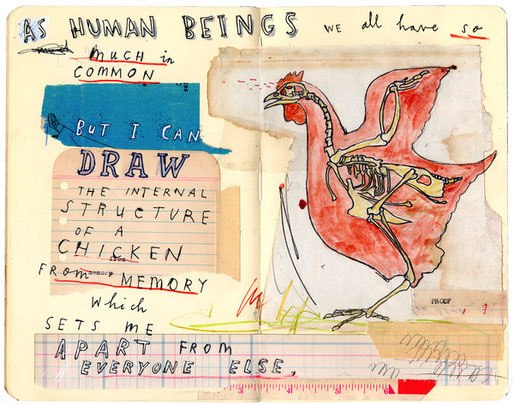 AS HUMAN BEINGS we all have so
MUCH in
COMMON
BUT I CAN
DRAW
THE INTERNAL
STRUCTURE
OF A
CHICKEN
FROM MEMORY
which
SETS ME
APART FROM
EVERYONE ELSE.
PROOF